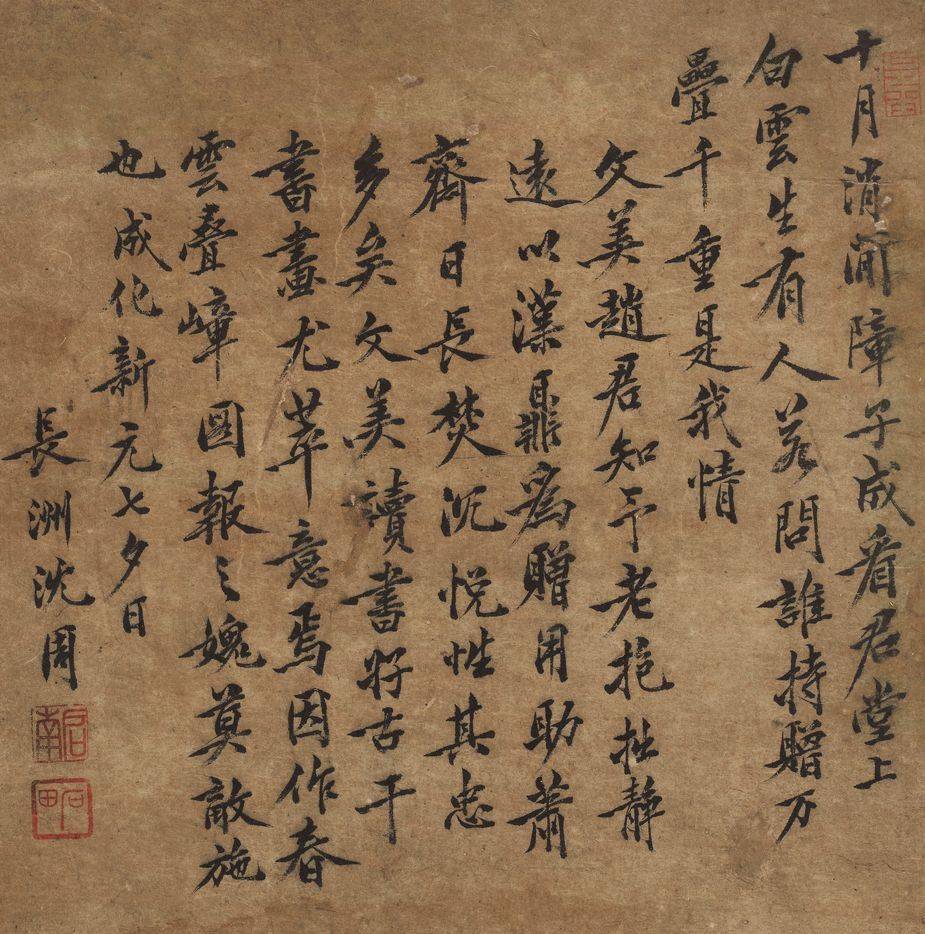 十月消閒障子成看君堂上
白雲生有人若問誰持贈万
疊千重是我情
文美趙君知予老抱拙靜
遠以漢鼎為贈用助蕭
齋日長焚沉悅性其忠
多矣文美讀書好古于
書畫尤萃意焉因作春
雲疊嶂圖報之媿莫敵施
也成化新元七夕日
長洲沈周
啟南
石田